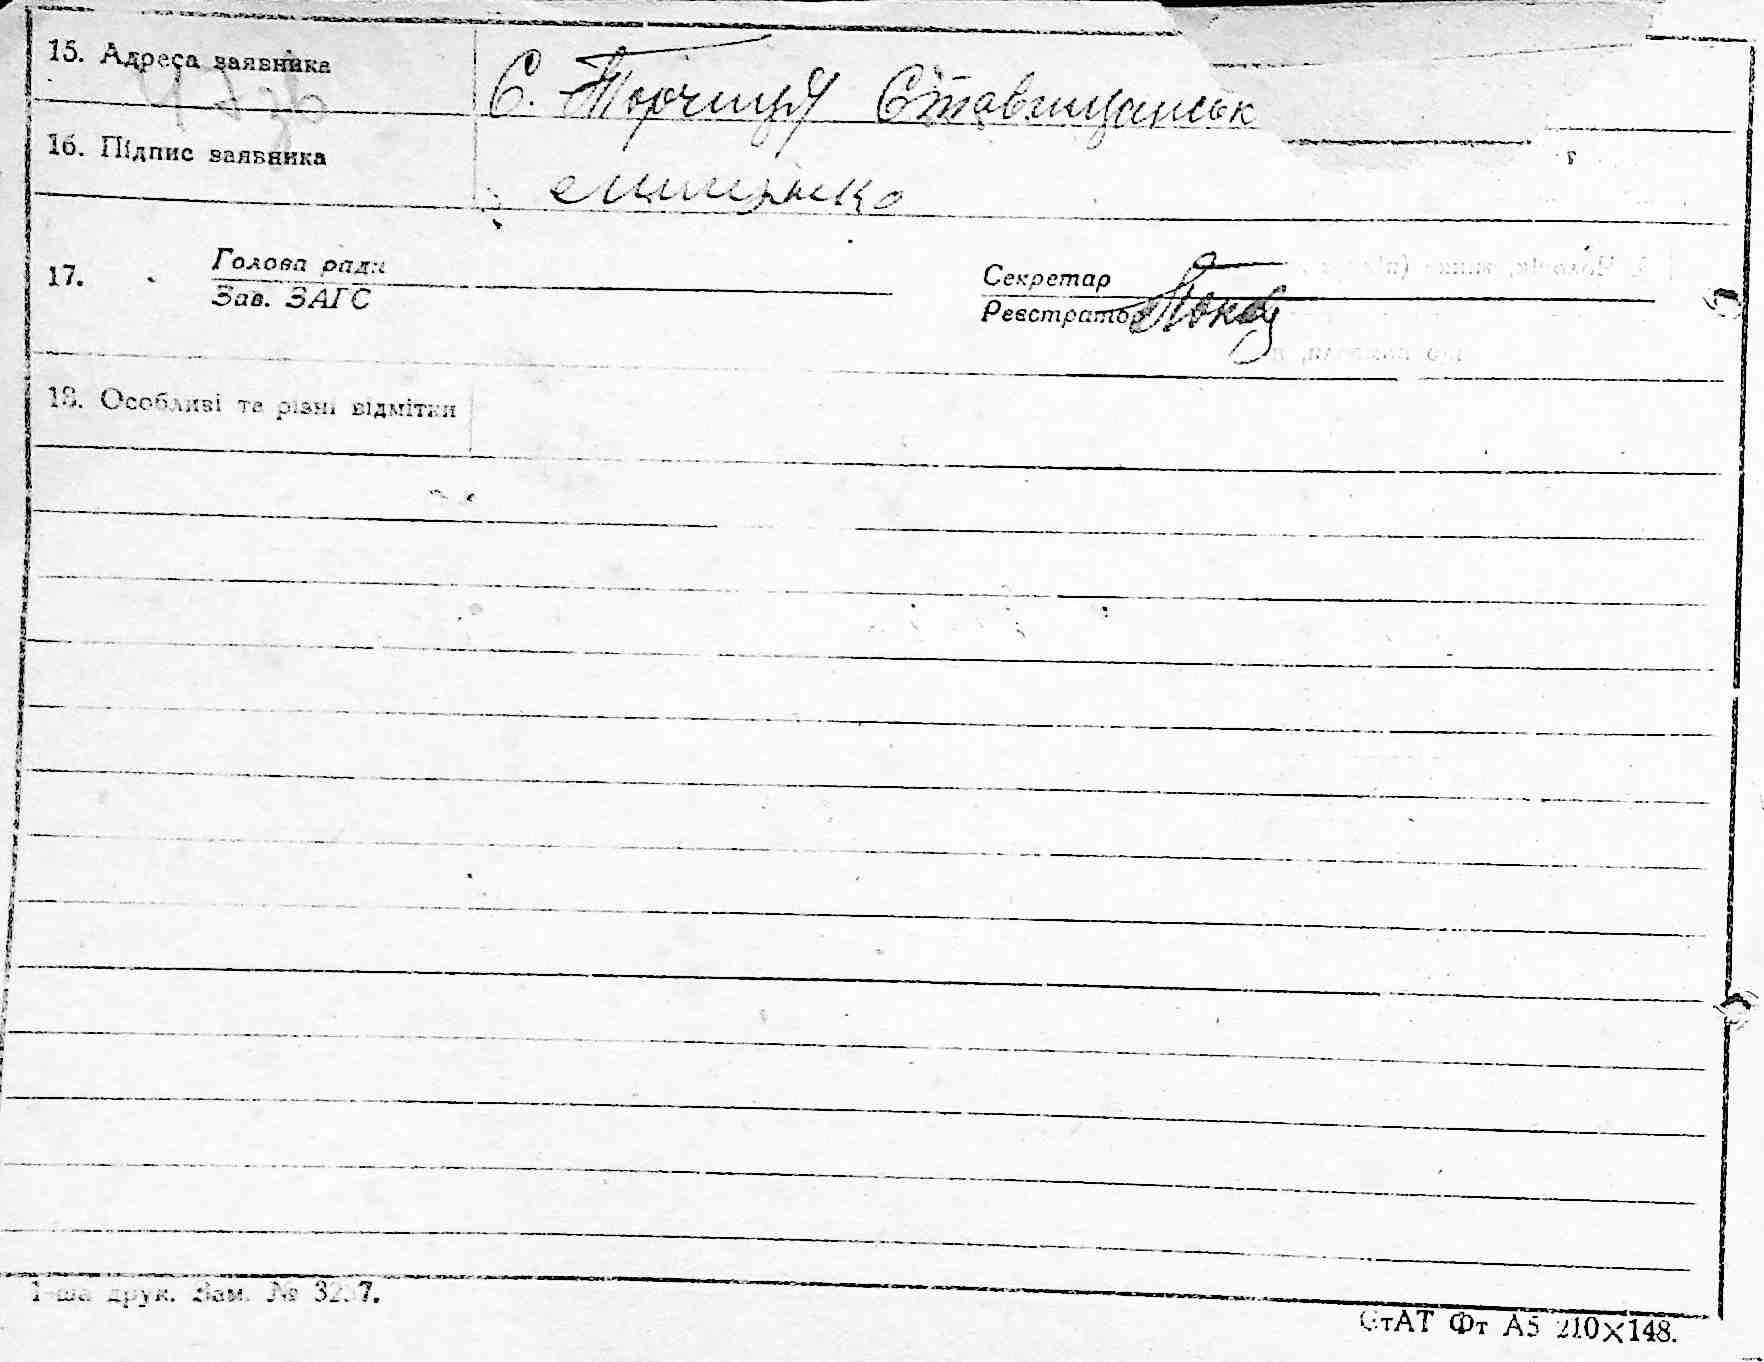 15. Адреса заявника С. Торчиця Ставищанськ
16. Підпис заявника
17. Голова ради Секретар
Зав. ЗАГС Реєстратор
18. Особливі та різні відмітки
1-ша друк. Зам. № 3237.
СтАТ Фт А5 210×148.